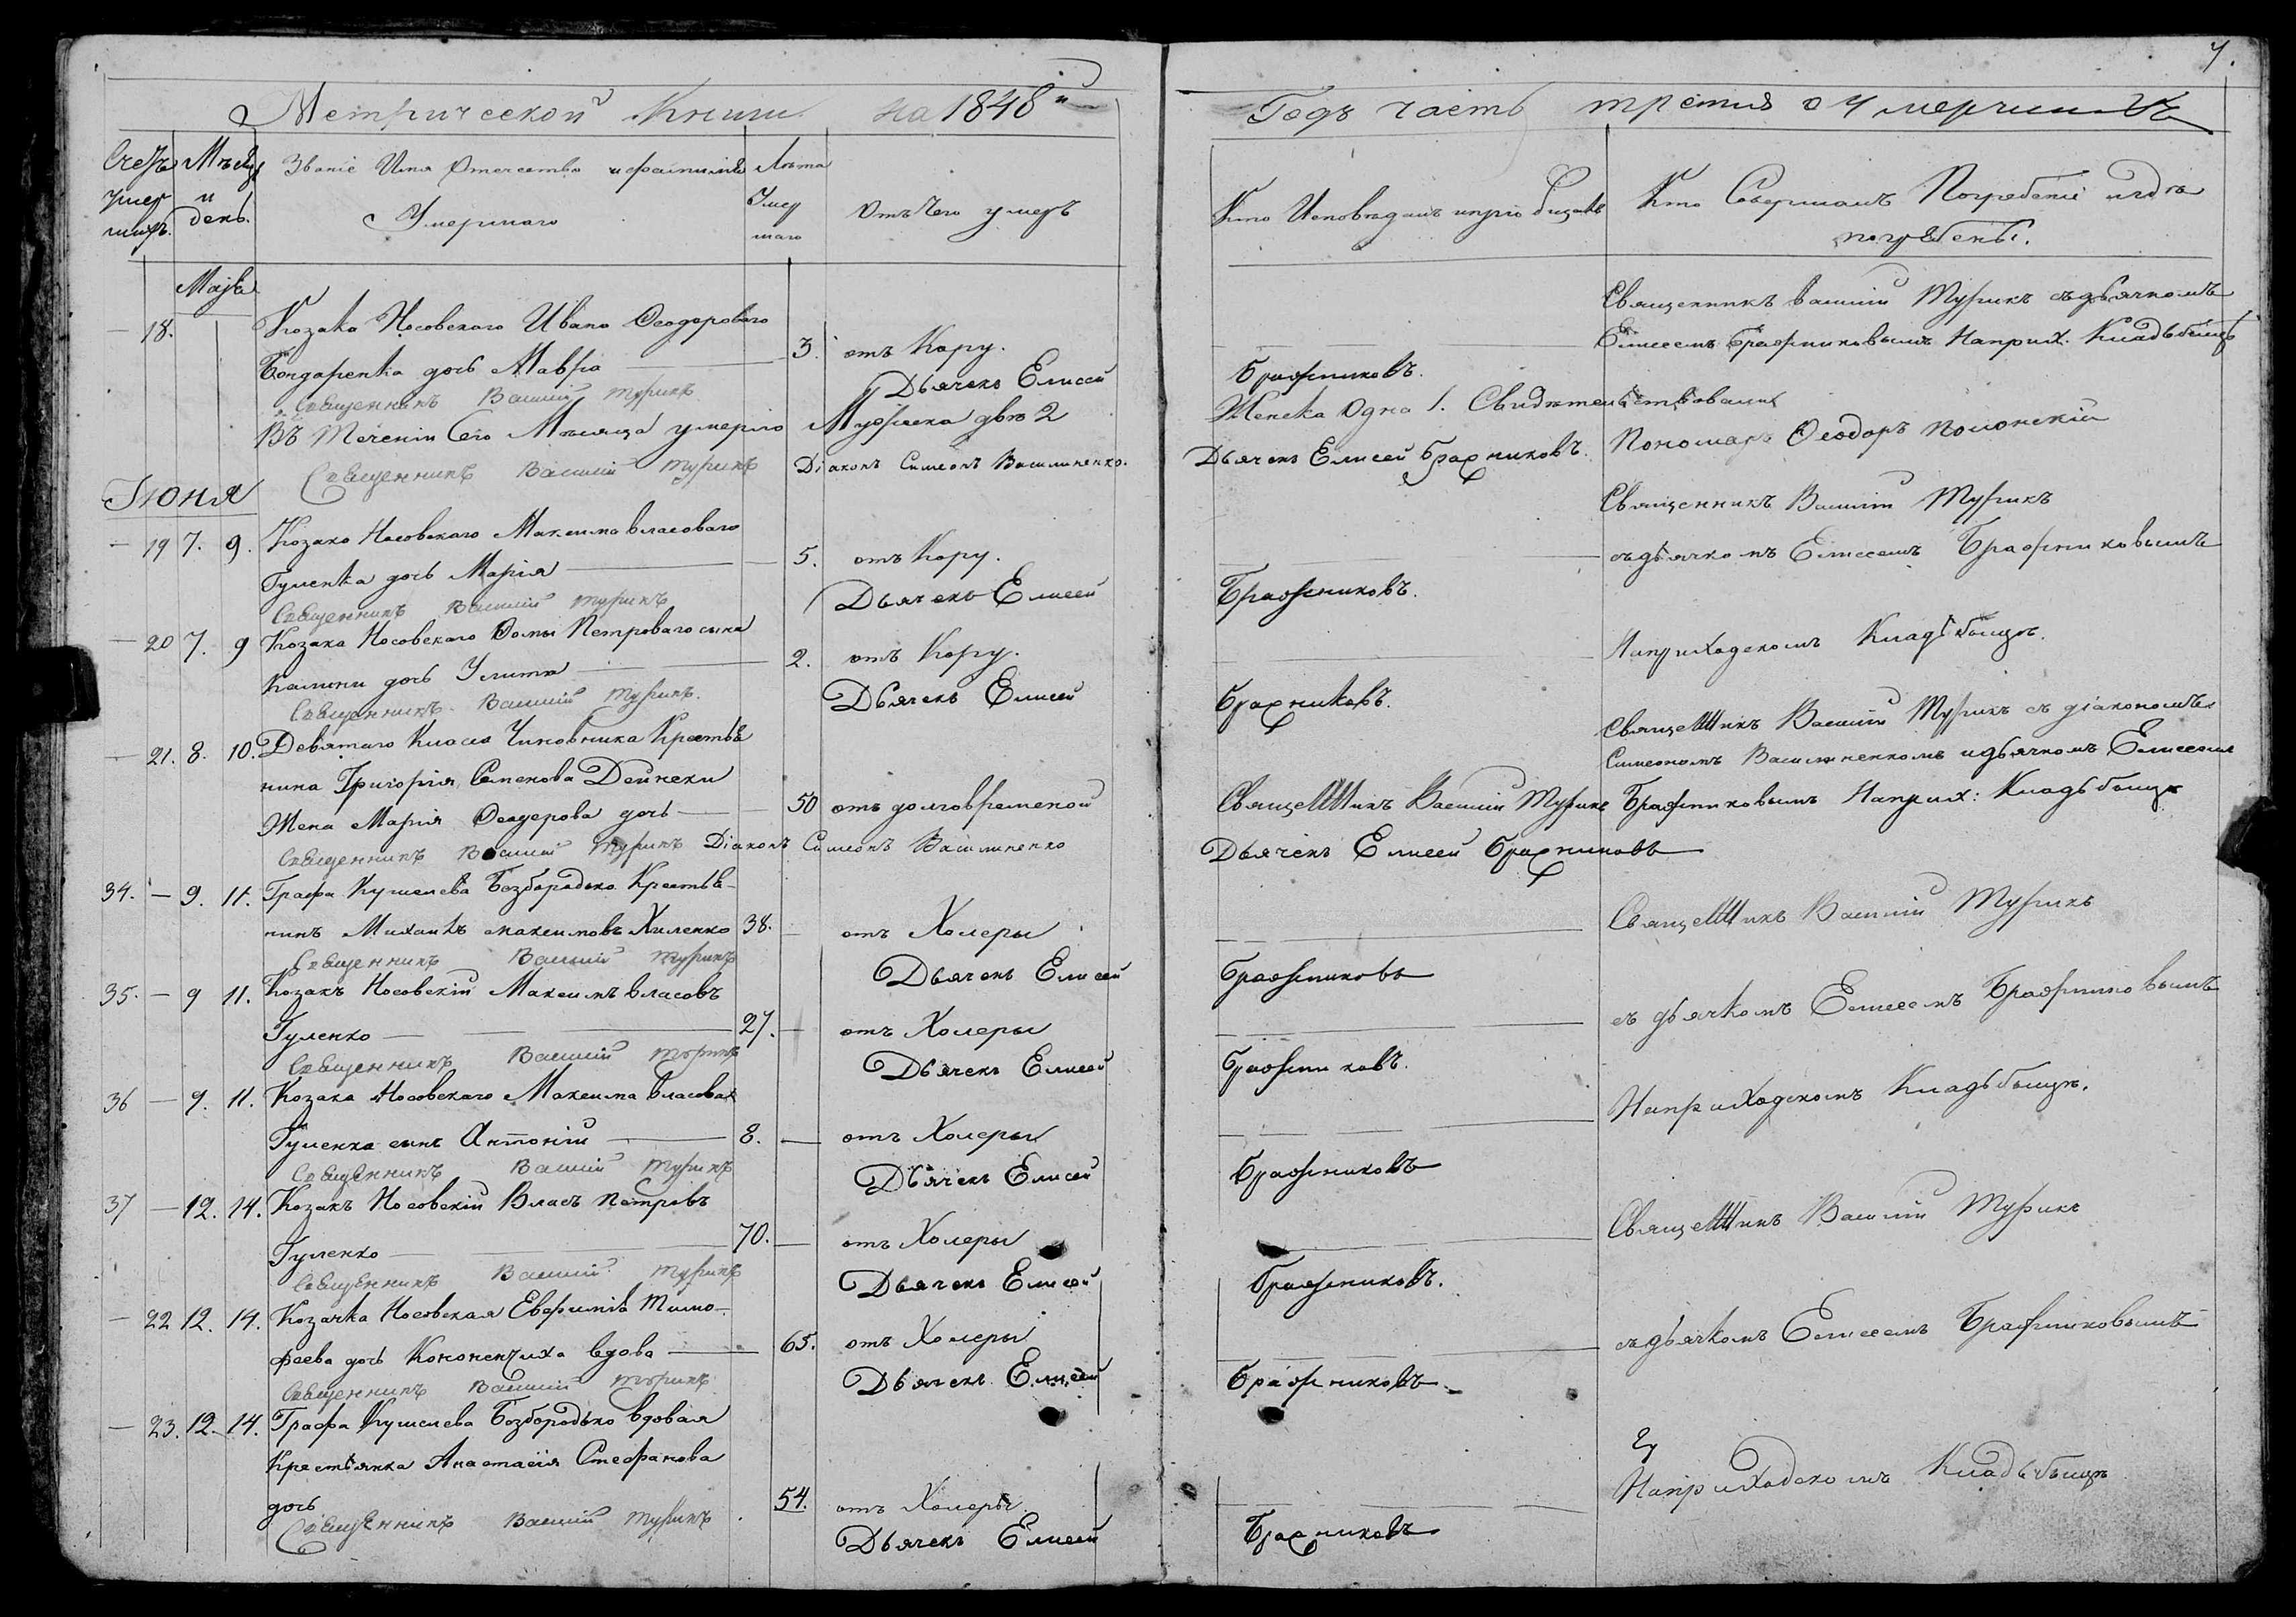 Метрической Книги на 1848й
Годъ часть третия о Умершихъ
7.
Счетъ умершихъ.
Мѣсяцъ и день.
Званіе Имя Отечество и фамилія
Умершаго
Лѣта Умершаго
Отъ Чего умеръ
Кто Исповѣдалъ и пріобщалъ
Кто Совершалъ Погребеніе и гдѣ
погребены.
Маія
— 18. Козака Носовского Ивана Ѳеодорового
Бондаренка дочь Мавра — 3. отъ Кору.
Священникъ Василій Турикъ Дьячекъ Елисей Бражниковъ.
Священникъ Василій Турикъ съ дьячкомъ
Елисеемъ Бражниковымъ На прих. Кладьбищѣ
Въ Теченіи Сего Мѣсяца умерло Мужеска двѣ 2 Женска Одна 1. Свидѣтельствовали
Священникъ Василій Турикъ Діаконъ Симеонъ Василиненко. Дьячекъ Елисей Бражниковъ. Пономарь Ѳеодоръ Полонскій
Іюня
— 19 7. 9. Козака Носовского Максима Власоваго
Гуленка дочь Марія — 5. отъ Кору.
Священникъ Василій Турикъ Дьячекъ Елисей Бражниковъ.
Священникъ Василій Турикъ
съ дьячкомъ Елисеемъ Бражниковымъ
— 20 7. 9 Козака Носовского Ѳомы Петроваго сына
Калюжи дочь Улита — 2. отъ Кору.
Священникъ Василій Турикъ. Дьячекъ Елисей Бражниковъ.
На приходскомъ Кладьбищѣ.
— 21. 8. 10. Девятаго Класа Чиновника Крестья-
нина Григорія Семенова Дейнеки
Жена Марія Ѳеодерова дочь — 50 отъ долговременой
Священникъ Василій Турикъ Діаконъ Симеонъ Василиненко
Священникъ Василій Турикъ
Дьячекъ Елисей Бражниковъ
Священникъ Василій Турикъ съ діакономъ
Симеономъ Василиненкомъ и дьячкомъ Елисеемъ
Бражниковымъ На прих: Кладьбищѣ
34. — 9. 11. Графа Кушелева Безбородько Крестья-
нинъ Михаилъ Максимовъ Хиленко 38. — отъ Холеры
Священникъ Василій Турикъ Дьячекъ Елисей Бражниковъ
Священникъ Василій Турикъ
35. — 9 11. Козакъ Носовскій Максимъ Власовъ
Гуленко — 27. — отъ Холеры
Священникъ Василій Турикъ Дьячекъ Елисей Бражниковъ.
съ дьячкомъ Елисеемъ Бражниковымъ
36 — 9. 11. Козака Носовского Максима Власова
Гуленка сынъ Антоній — 8. — отъ Холеры
Священникъ Василій Турикъ Дьячекъ Елисей Бражниковъ
На приходскомъ Кладьбищѣ.
37 — 12. 14. Козакъ Носовскій Власъ Петровъ
Гуленко — 70. — отъ Холеры
Священникъ Василій Турикъ Дьячекъ Елисей Бражниковъ.
Священникъ Василій Турикъ
— 22 12. 14. Козачка Носовская Евфимія Тимо-
феева дочь Кононенчиха вдова — 65. отъ Холеры
Священникъ Василій Турикъ Дьячекъ Елисей Бражниковъ
съ дьячкомъ Елисеемъ Бражниковымъ
— 23. 12. 14. Графа Кушелева Безбородько вдовая
Крестьянка Анастасія Стефанова
дочь 54. отъ Холеры
Священникъ Василій Турикъ Дьячекъ Елисей Бражниковъ
На приходскомъ Кладьбищѣ